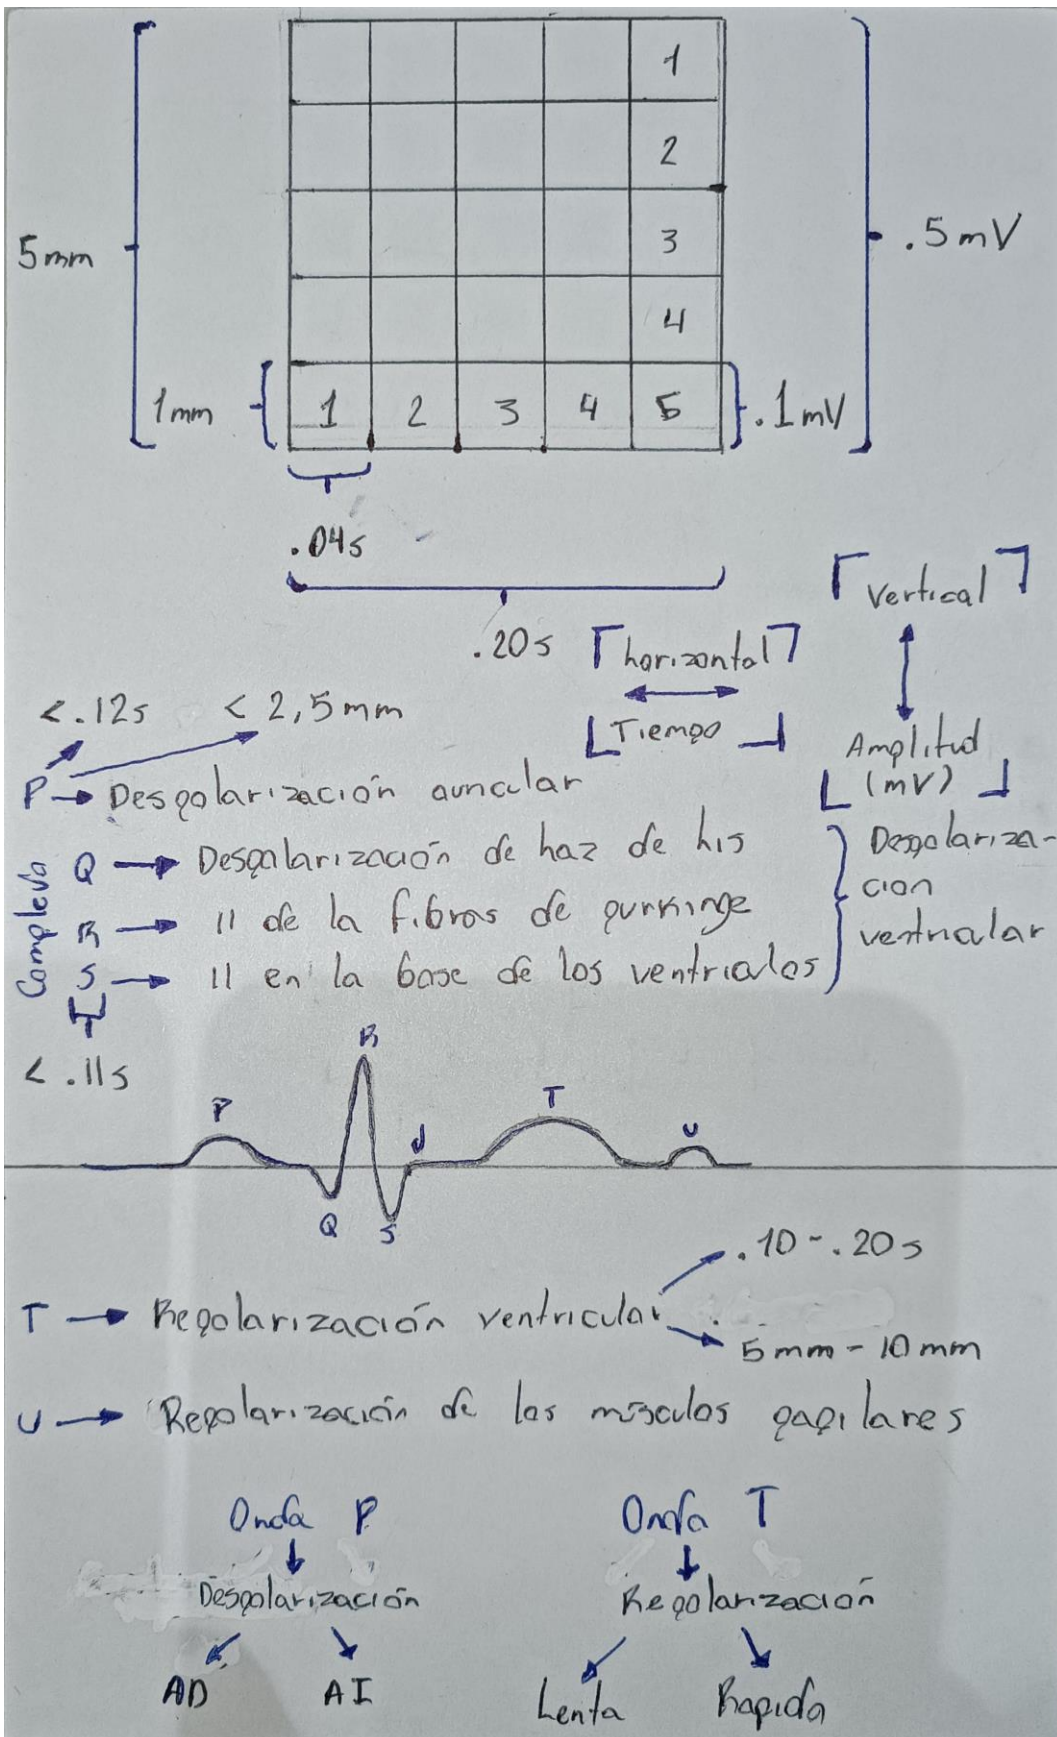 1
2
3
4
5 mm
.5 mV
1 mm
1 2 3 4 5
.1 mV
.04s
.20s
horizontal
Tiempo
Vertical
Amplitud
(mV)
<.12s < 2,5 mm
P → Despolarización auricular
Complejo
Q → Despolarización de haz de his
R → 11 de la fibras de purkinge
S → 11 en la base de los ventriculos
Despolariza-
cion
ventricular
< .11s
P
Q
R
S
J
T
U
T → Repolarización ventricular
.10 - .20s
5 mm - 10 mm
U → Repolarización de los músculos papilares
Onda P
Despolarización
AD AI
Onda T
Repolarización
Lenta Rapida